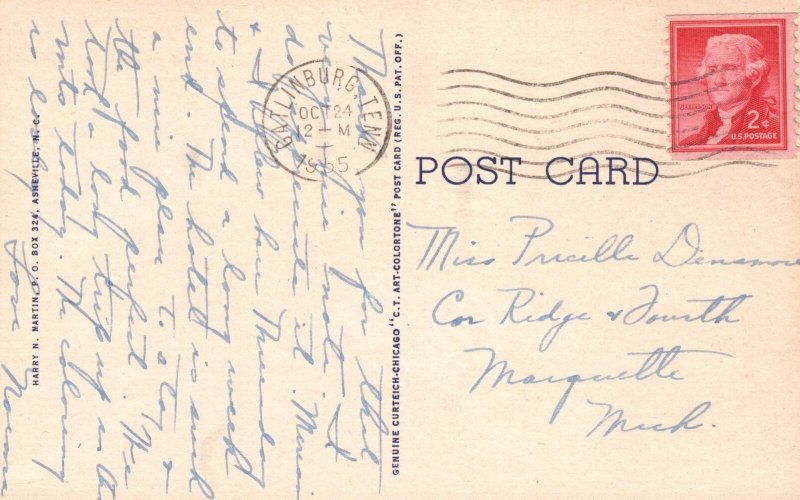 Thank you for that
very nice note. I
do appreciate it.
& I flew here Thursday
to spend a long week
end. The hotel is such
a nice place to stay &
the food perfect. We
had a long trip up in the
mts today. The coloring
is lovely.
Love
HARRY N. MARTIN, P. O. BOX 324, ASHEVILLE, N. C.
GATLINBURG, TENN
OCT 24
12 - M
1955
GENUINE CURTEICH-CHICAGO "C.T. ART-COLORTONE" POST CARD (REG. U.S. PAT. OFF.)
JEFFERSON
2¢
U.S. POSTAGE
POST CARD
Miss Pricilla Densmore
Cor Ridge & Fourth
Marquette
Mich.